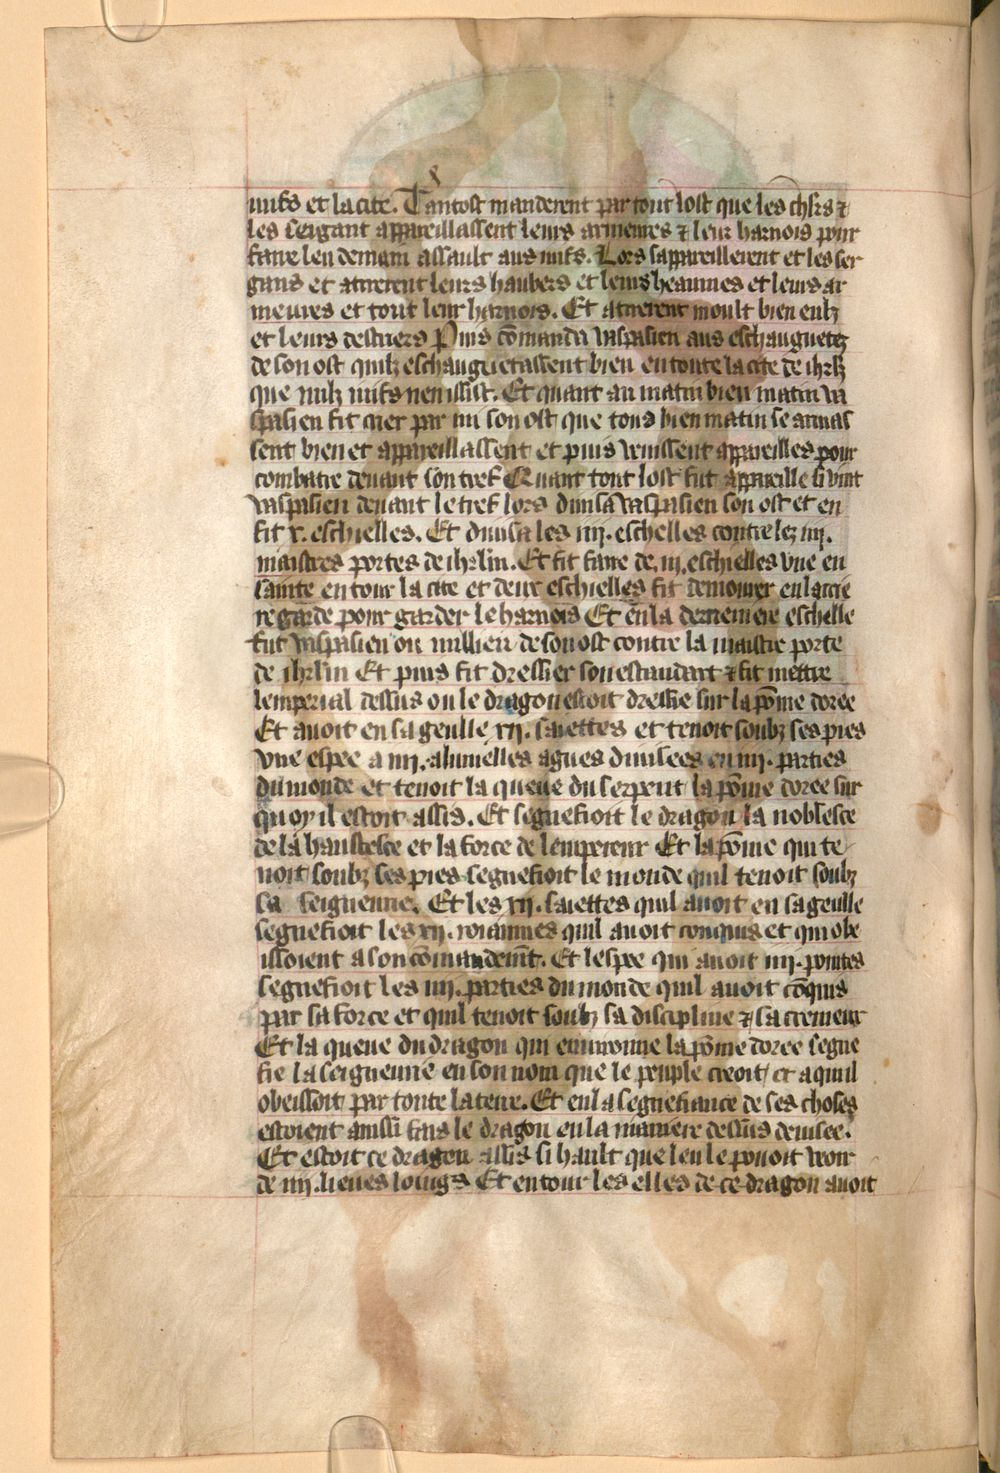 iuifs et la cite. Tantost manderent par tout lost que les chlrs ⁊
les sergant appareillassent leurs armeures ⁊ leur harnois pour
faire len demain assault aus iuifs. Lors sappareillerent et les ser
gans et atirerent leurs haubers et leurs heaumes et leurs ar
meures et tout leur harnois. Et atirerent moult bien eulz
et leurs destriers Puis cōmanda vaspasien aus eschauguetez
de son ost quilz eschauguetassent bien en toute la cite de ihrlz
que nulz iuifs nen issist. Et quant au matin bien matin va
spasien fit crier par mi son ost que tous bien matin se armas
sent bien et appareillassent et puis venissent appareilles pour
combatre deuant son tref Quant tout lost fut appareille si vint
vaspasien deuant le tref lors diuisa vaspasien son ost et en
fit x. eschielles. Et diuisa les iiij. eschelles contre lez iiij.
maistres portes de ihrlm. Et fit faire de. iij. eschielles vne en
sainte en tour la cite et deux eschielles fit demourer en larrie
re garde pour garder le harnois Et en la derreniere eschelle
fut vaspasien ou millieu de son ost contre la maistre porte
de ihrlm Et puis fit dressier son estandart ⁊ fit mettre
lemperial dessus ou le dragon estoit dressie sur la pōme doree
Et auoit en sa geulle xij. saiettes et tenoit soubz ses pies
vne espee a iiij. alumelles agues diuisees en iiij. parties
du monde et tenoit la queue du serpent la pōme doree sur
quoy il estoit assis. Et segnefioit le dragon la noblesce
de la haultesce et la force de lempereur Et la pōme qui te
noit soubz ses pies segnefioit le monde quil tenoit soubz
sa seigneurie. Et les xij. saiettes quil auoit en sa geulle
segnefioit les xij. roiaumes quil auoit conquis et qui obe
issoient a son cōmandemēt. Et lespee qui auoit iiij. pointes
segnefioit les iiij. parties du monde quil auoit cōquis
par sa force et quil tenoit soubz sa discipline ⁊ sa cremeur
Et la queue du dragon qui enuironne la pōme doree segne
fie la seigneurie en son nom que le peuple creoit et a quil
obeissoit par toute la terre. Et en la segnefiance de ses choses
estoient ainssi fais le dragon en la maniere dessus deuisee.
Et estoit ce dragon assis si hault que len le pouoit veoir
de iiij. lieues loings Et en tour les elles de ce dragon auoit